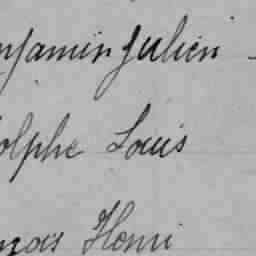 njamin Julien -
olphe Louis
nçois Henri